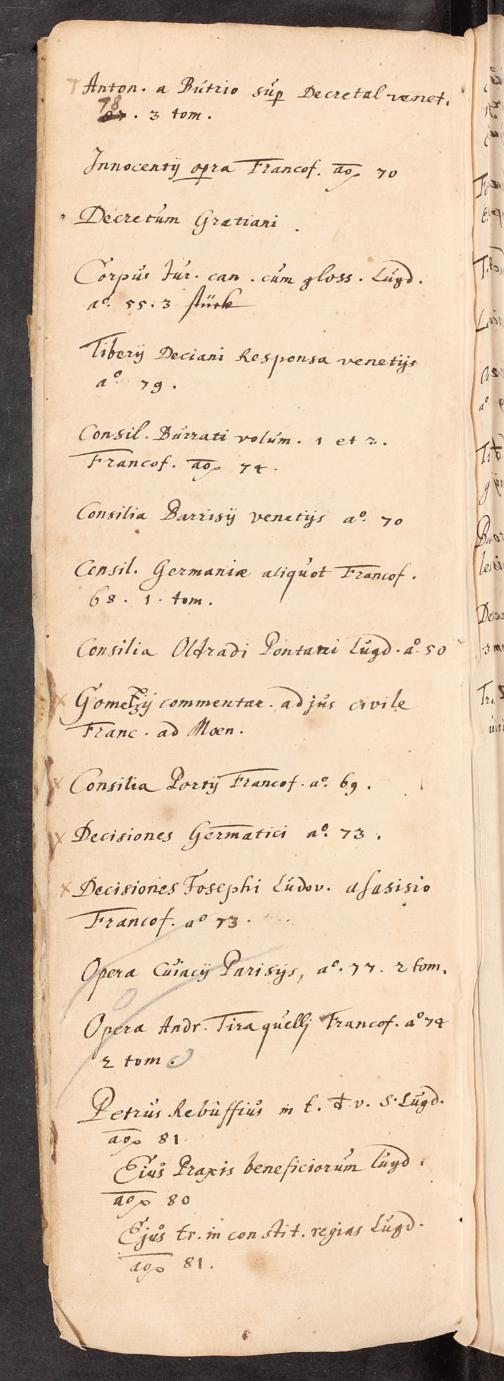 Anton. a Butrio sup Decretal venet.
78. 3 tom.
Innocentij opra Francof. ao 70
Decretum Gratiani.
Corpus Jur. can. cum gloss. Lugd.
ao. 55. 3 stück
Tiberij Deciani Responsa venetijs
ao. 79.
Consil. Burrati volum. 1 et 2.
Francof. ao 74.
Consilia Barrisij venetijs ao. 70
Consil. Germaniæ aliquot Francof.
68. 1. tom.
Consilia Oldradi Pontani Lugd. ao. 50
Gometzij commentar. ad jus civile
Franc. ad Mœn.
Consilia Portij Francof. ao. 69.
Decisiones Germatici ao. 73.
Decisiones Josephi Ludov. assisio
Francof. ao 73.
Opera Cuiacij Parisijs, ao. 77. 2 tom.
Opera Andr. Tiraquelli Francof. ao 74
2 tom
Petrus Rebuffius in t. d. v. S. Lugd.
ao 81
Eius Praxis beneficiorum Lugd.
ao 80
Ejus tr. in constit. regias Lugd.
ao 81.